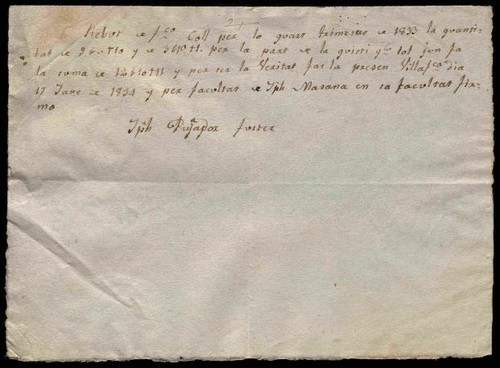 Rebut de fco Coll per lo quart trimestre de 1833 la quanti-
tat de y de per la part de la quint q. tot jun fa
la suma de y per ser la Veritat fas la presen Villafca dia
17 Jane de 1834 y per facultat de Jph Masana en sa facultat fir-
mo
Jph Pujador fuster